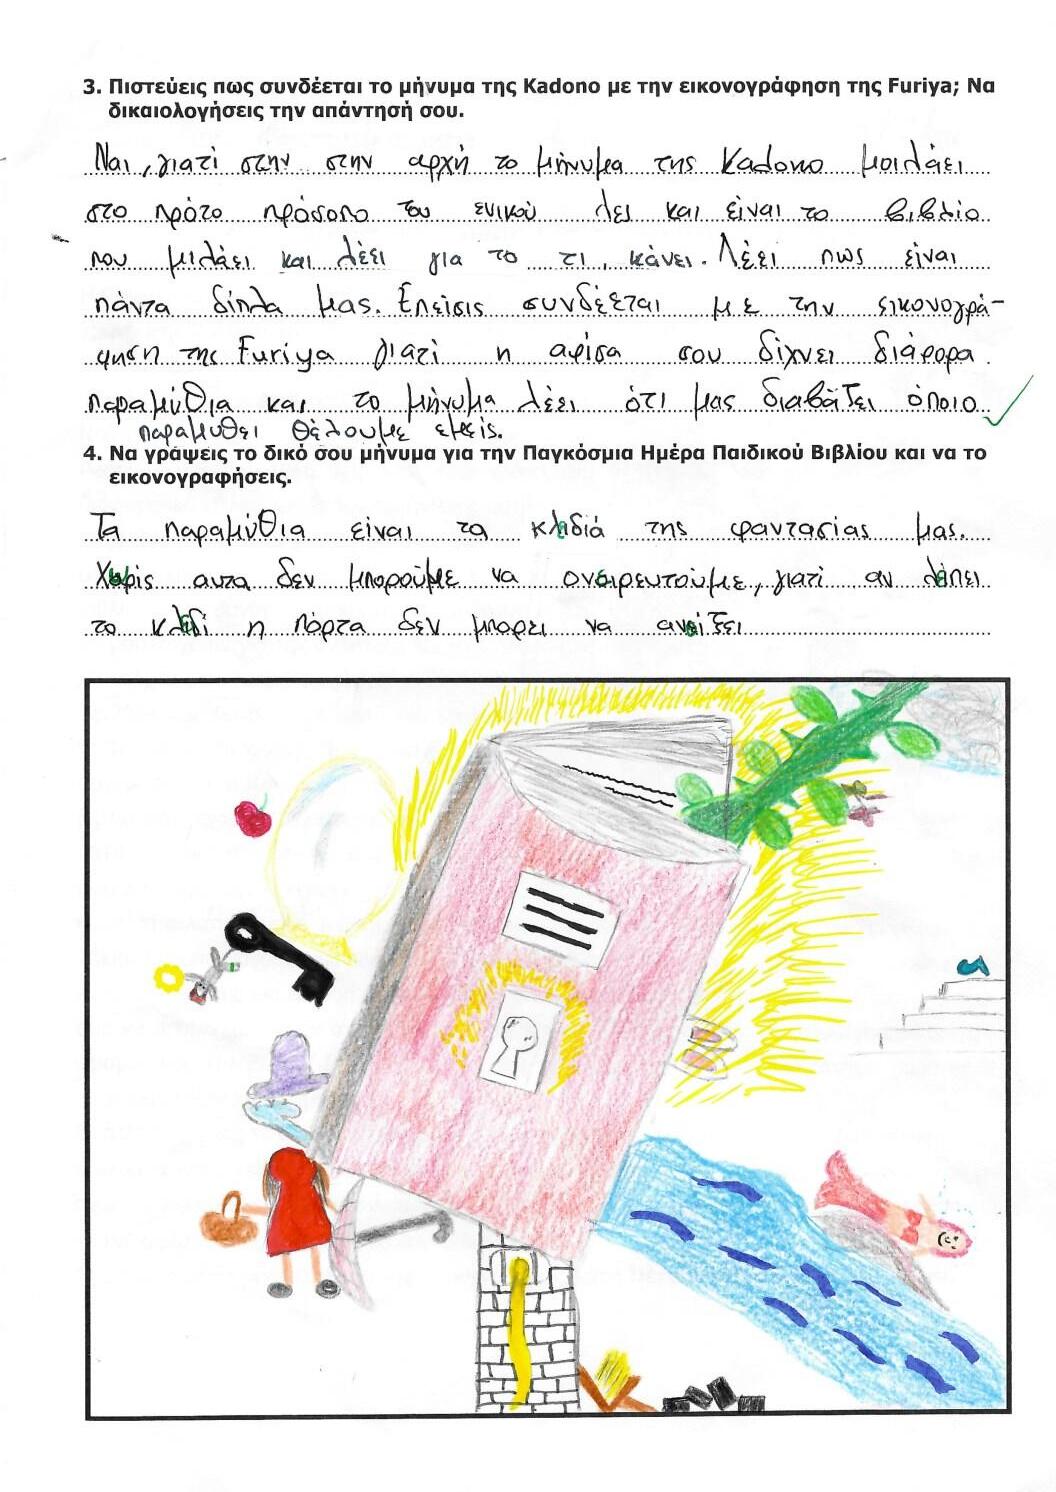 3. Πιστεύεις πως συνδέεται το μήνυμα της Kadono με την εικονογράφηση της Furiya; Να
δικαιολογήσεις την απάντησή σου.
Ναι, γιατί στην στην αρχή το μήνυμα της Kadono μοιλάει
στο πρότο πρόσοπο του ενικού λει και είναι το βιβλίο
που μιλάει και λέει για το τι, κάνει. Λέει πως είναι
πάντα δίπλα μας. Επείσις συνδέεται με την εικονογρά-
φηση της Furiya γιατί η αφίσα σου δίχνει διάφορα
παραμύθια και το μήνυμα λέει ότι μας διαβάζει όποιο
παραμυθει θέλουμε εμείς.
4. Να γράψεις το δικό σου μήνυμα για την Παγκόσμια Ημέρα Παιδικού Βιβλίου και να το
εικονογραφήσεις.
Τα παραμύθια είναι τα κλειδιά της φαντασίας μας.
Χωρίς αυτα δεν μπορούμε να ονειρευτούμε, γιατί αν λείπει
το κλειδί η πόρτα δεν μπορει να ανοίξει